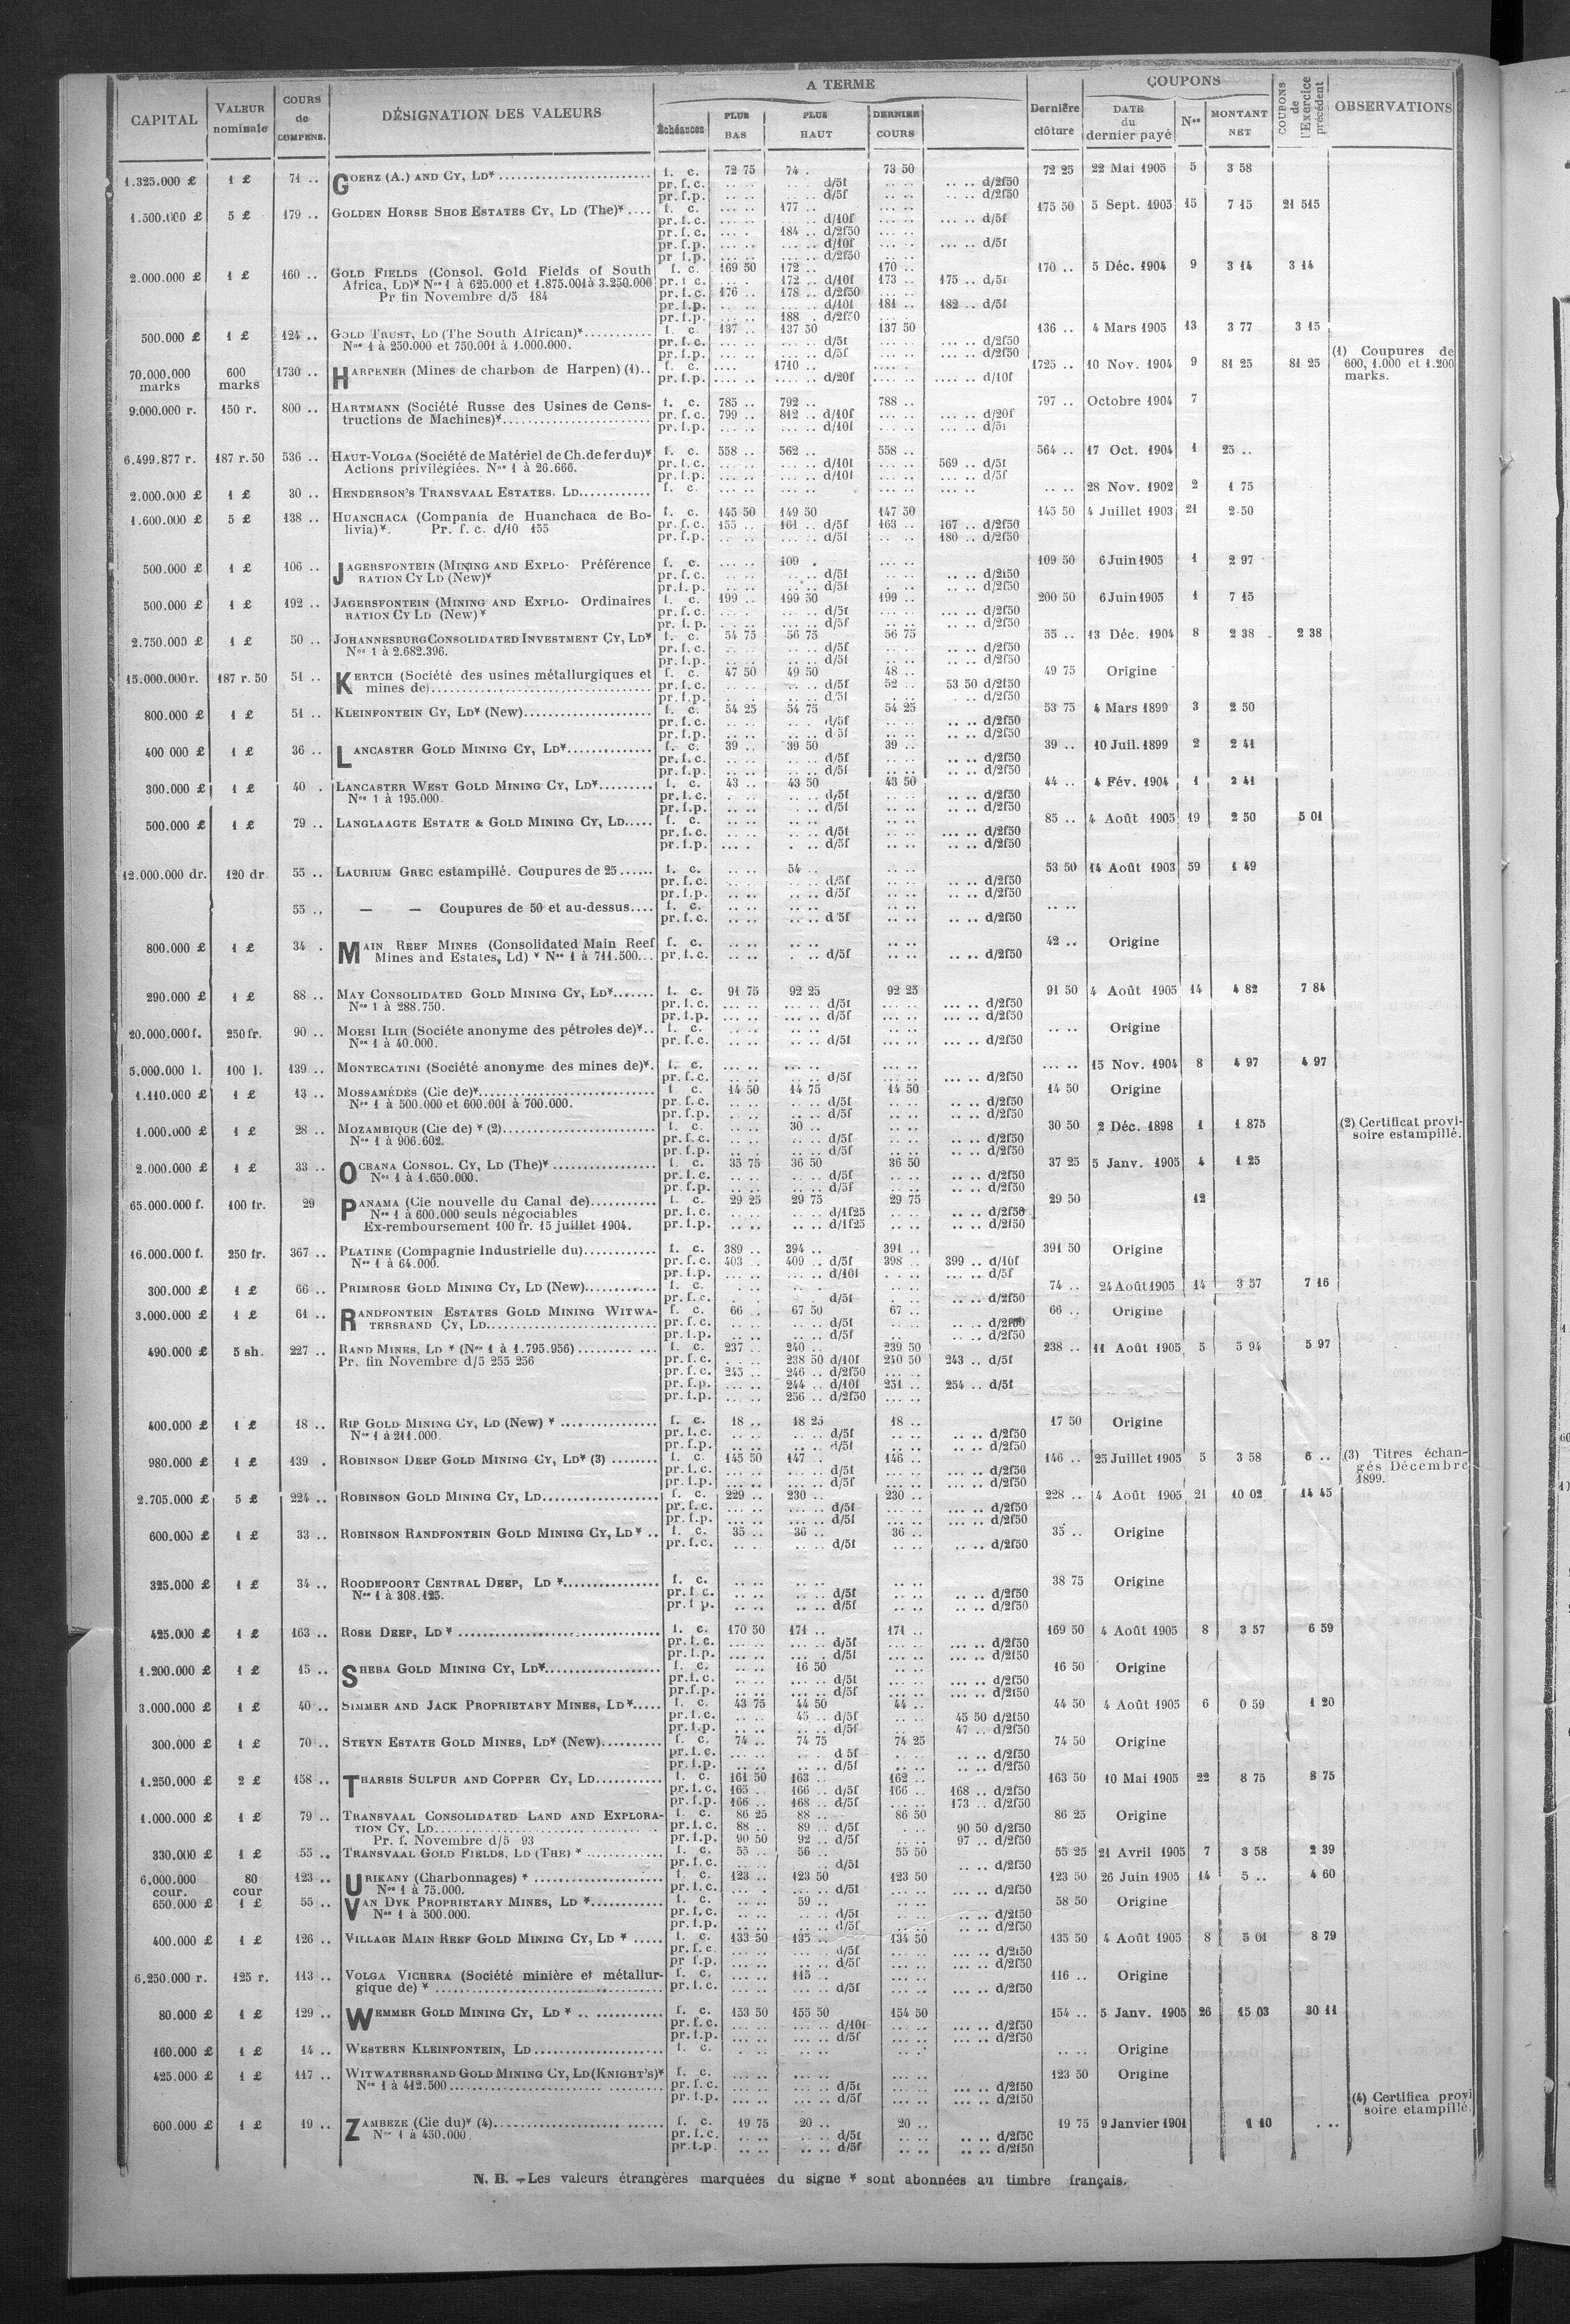 CAPITAL VALEUR nominale COURS de COMPENS. DÉSIGNATION DES VALEURS A TERME Échéances PLUS BAS PLUS HAUT DERNIER COURS Dernière clôture COUPONS DATE du dernier payé Nos MONTANT NET COUPONS de l'Exercice précédent OBSERVATIONS
1.325.000 £ 1 £ 71 .. GOERZ (A.) AND CY, LD* f. c. 72 75 74 . 73 50 72 25 22 Mai 1905 5 3 58
pr. f. c. d/5f d/2f50
pr. f.p. d/5f d/2f50
1.500.000 £ 5 £ 179 .. GOLDEN HORSE SHOE ESTATES CY, LD (The)* f. c. 177 .. 175 50 5 Sept. 1905 15 7 15 21 515
pr. f.c. d/10f d/5f
pr. f.c. 184 .. d/2f50
pr. f.p. d/10f d/5f
pr. f.p. d/2f50
2.000.000 £ 1 £ 160 .. GOLD FIELDS (Consol. Gold Fields of South f. c. 169 50 172 .. 170 .. 170 .. 5 Déc. 1904 9 3 14 3 14
Africa, LD)* Nos 1 à 625.000 et 1.875.001 à 3.250.000 pr. f. c. 172 .. d/10f 173 .. 175 .. d/5f
Pr fin Novembre d/5 184 pr. f.c. 176 .. 178 .. d/2f50
pr. f.p. d/10f 181 .. 182 .. d/5f
pr. f.p. 188 . d/2f50
500.000 £ 1 £ 124 .. GOLD TRUST, LD (The South African)* f. c. 137 .. 137 50 137 50 136 .. 4 Mars 1905 13 3 77 3 15
Nos 1 à 250.000 et 750.001 à 1.000.000. pr. f.c. d/5f d/2f50
pr. f.p. d/5f d/2f50
70.000.000 marks 600 marks 1730 .. HARPENER (Mines de charbon de Harpen) (1) f. c. 1710 .. 1725 .. 10 Nov. 1904 9 81 25 81 25 (1) Coupures de 600, 1.000 et 1.200 marks.
pr. f.p. d/20f d/10f
9.000.000 r. 150 r. 800 .. HARTMANN (Société Russe des Usines de Cons- f. c. 785 .. 792 .. 788 .. 797 .. Octobre 1904 7
tructions de Machines)* pr. f.c. 799 .. 812 .. d/10f d/20f
pr. f.p. d/10f d/5f
6.499.877 r. 187 r. 50 536 .. HAUT-VOLGA (Société de Matériel de Ch. de fer du)* f. c. 558 .. 562 .. 558 .. 564 .. 17 Oct. 1904 1 25 ..
Actions privilégiées. Nos 1 à 26.666. pr. f.c. d/10f 569 .. d/5f
pr. f.p. d/10f d/5f
2.000.000 £ 1 £ 30 .. HENDERSON'S TRANSVAAL ESTATES. LD f. c. 28 Nov. 1902 2 1 75
1.600.000 £ 5 £ 138 .. HUANCHACA (Compania de Huanchaca de Bo- f. c. 145 50 149 50 147 50 145 50 4 Juillet 1903 21 2 50
livia)*. Pr. f. c. d/10 155 pr. f.c. 155 .. 161 .. d/5f 163 .. 167 .. d/2f50
pr. f.p. d/5f 180 .. d/2f50
500.000 £ 1 £ 106 .. JAGERSFONTEIN (MINING AND EXPLO- Préférence f. c. 109 . 109 50 6 Juin 1905 1 2 97
RATION CY LD (New)* pr. f.c. d/5f d/2f50
pr. f. p. d/5f d/2f50
500.000 £ 1 £ 192 .. JAGERSFONTEIN (MINING AND EXPLO- Ordinaires f. c. 199 .. 199 50 199 .. 200 50 6 Juin 1905 1 7 15
RATION CY LD (New)* pr. f. c. d/5f d/2f50
pr. f. p. d/5f d/2f50
2.750.000 £ 1 £ 50 .. JOHANNESBURG CONSOLIDATED INVESTMENT CY, LD* f. c. 54 75 56 75 56 75 55 .. 13 Déc. 1904 8 2 38 2 38
Nos 1 à 2.682.396. pr. f.c. d/5f d/2f50
pr. f.p. d/5f d/2f50
15.000.000 r. 187 r. 50 51 .. KERTCH (Société des usines métallurgiques et f. c. 47 50 49 50 48 .. 49 75 Origine
mines de) pr. f.c. d/5f 52 .. 53 50 d/2f50
pr. f.p. d/5f d/2f50
800.000 £ 1 £ 51 .. KLEINFONTEIN CY, LD* (New) f. c. 54 25 54 75 54 25 53 75 4 Mars 1899 3 2 50
pr. f.c. d/5f d/2f50
pr. f.p. d/5f d/2f50
400 000 £ 1 £ 36 .. LANCASTER GOLD MINING CY, LD* f. c. 39 .. 39 50 39 .. 39 .. 10 Juil. 1899 2 2 41
pr. f.c. d/5f d/2f50
pr. f.p. d/5f d/2f50
300.000 £ 1 £ 40 . LANCASTER WEST GOLD MINING CY, LD* f. c. 43 .. 43 50 43 50 44 .. 4 Fév. 1904 1 2 41
Nos 1 à 195.000. pr. f.c. d/5f d/2f50
pr. f.p. d/5f d/2f50
500.000 £ 1 £ 79 .. LANGLAAGTE ESTATE & GOLD MINING CY, LD f. c. 85 .. 4 Août 1905 19 2 50 5 01
pr. f.c. d/5f d/2f50
pr. f.p. d/5f d/2f50
12.000.000 dr. 120 dr. 55 .. LAURIUM GREC estampillé. Coupures de 25 f. c. 54 .. 53 50 14 Août 1903 59 1 49
pr. f.c. d/5f d/2f50
pr. f.p. d/5f d/2f50
55 .. — — Coupures de 50 et au-dessus f. c.
pr. f.c. d/5f d/2f50
800.000 £ 1 £ 34 . MAIN REEF MINES (Consolidated Main Reef f. c. 42 .. Origine
Mines and Estates, Ld) * Nos 1 à 711.500 pr. f.c. d/5f d/2f50
290.000 £ 1 £ 88 .. MAY CONSOLIDATED GOLD MINING CY, LD* f. c. 91 75 92 25 92 25 91 50 4 Août 1905 14 4 82 7 84
Nos 1 à 288.750. pr. f.c. d/5f d/2f50
pr. f.p. d/5f d/2f50
20.000.000 f. 250 fr. 90 .. MOESI ILIR (Sociéte anonyme des pétroles de)* f. c. Origine
Nos 1 à 40.000. pr. f.c. d/5f d/2f50
5.000.000 l. 100 l. 139 .. MONTECATINI (Société anonyme des mines de)*. f. c. 15 Nov. 1904 8 4 97 4 97
pr. f.c. d/5f d/2f50
1.110.000 £ 1 £ 13 .. MOSSAMÉDÈS (Cie de)* f. c. 14 50 14 75 14 50 14 50 Origine
Nos 1 à 500.000 et 600.001 à 700.000. pr. f.c. d/5f d/2f50
pr. f.p. d/5f d/2f50
1.000.000 £ 1 £ 28 .. MOZAMBIQUE (Cie de) * (2) f. c. 30 .. 30 50 2 Déc. 1898 1 1 875 (2) Certificat provi-soire estampillé.
Nos 1 à 906.602. pr. f.c. d/5f d/2f50
pr. f.p. d/5f d/2f50
2.000.000 £ 1 £ 33 .. OCEANA CONSOL. CY, LD (The)* f. c. 35 75 36 50 36 50 37 25 5 Janv. 1905 4 1 25
Nos 1 à 1.650.000. pr. f.c. d/5f d/2f50
pr. f.p. d/5f d/2f50
65.000.000 f. 100 fr. 29 PANAMA (Cie nouvelle du Canal de) f. c. 29 25 29 75 29 75 29 50 12
Nos 1 à 600.000 seuls négociables pr. f.c. d/1f25 d/2f50
Ex-remboursement 100 fr. 15 juillet 1904. pr. f.p. d/1f25 d/2f50
16.000.000 f. 250 fr. 367 .. PLATINE (Compagnie Industrielle du) f. c. 389 .. 394 .. 391 .. 391 50 Origine
Nos 1 à 64.000. pr. f.c. 403 . 409 .. d/5f 398 .. 399 .. d/10f
pr. f.p. d/10f d/5f
300.000 £ 1 £ 66 .. PRIMROSE GOLD MINING CY, LD (New) f. c. 74 .. 24 Août 1905 14 3 57 7 16
pr. f.c. d/5f d/2f50
3.000.000 £ 1 £ 61 .. RANDFONTEIN ESTATES GOLD MINING WITWA- f. c. 66 .. 67 50 67 .. 66 .. Origine
TERSRAND CY, LD pr. f.c. d/5f d/2f50
pr. f.p. d/5f d/2f50
490.000 £ 5 sh. 227 .. RAND MINES, LD * (Nos 1 à 1.795.956) f. c. 237 .. 240 .. 239 50 238 .. 11 Août 1905 5 5 94 5 97
Pr. fin Novembre d/5 255 256 pr. f.c. 238 50 d/10f 240 50 243 .. d/5f
pr. f.c. 245 .. 246 .. d/2f50
pr. f.p. 244 .. d/10f 251 .. 254 .. d/5f
pr. f.p. 256 .. d/2f50
400.000 £ 1 £ 18 .. RIP GOLD MINING CY, LD (New) * f. c. 18 .. 18 25 18 .. 17 50 Origine
Nos 1 à 211.000. pr. f.c. d/5f d/2f50
pr. f.p. d/5f d/2f50
980.000 £ 1 £ 139 . ROBINSON DEEP GOLD MINING CY, LD* (3) f. c. 145 50 147 . 146 .. 146 .. 25 Juillet 1905 5 3 58 6 .. (3) Titres échan-gés Décembre 1899.
pr. f.c. d/5f d/2f50
pr. f.p. d/5f d/2f50
2.705.000 £ 5 £ 224 .. ROBINSON GOLD MINING CY, LD f. c. 229 .. 230 .. 230 .. 228 .. 4 Août 1905 21 10 02 14 45
pr. f.c. d/5f d/2f50
pr. f.p. d/5f d/2f50
600.000 £ 1 £ 33 .. ROBINSON RANDFONTEIN GOLD MINING CY, LD* f. c. 35 .. 36 .. 36 .. 35 .. Origine
pr. f.c. d/5f d/2f50
325.000 £ 1 £ 34 .. ROODEPOORT CENTRAL DEEP, LD * f. c. 38 75 Origine
Nos 1 à 308.125. pr. f. c. d/5f d/2f50
pr. f. p. d/5f d/2f50
425.000 £ 1 £ 163 .. ROSE DEEP, LD * f. c. 170 50 171 .. 171 .. 169 50 4 Août 1905 8 3 57 6 59
pr. f.c. d/5f d/2f50
pr. f.p. d/5f d/2f50
1.200.000 £ 1 £ 15 .. SHEBA GOLD MINING CY, LD* f. c. 16 50 16 50 Origine
pr. f.c. d/5f d/2f50
pr. f.p. d/5f d/2f50
3.000.000 £ 1 £ 40 .. SIMMER AND JACK PROPRIETARY MINES, LD* f. c. 43 75 44 50 44 .. 44 50 4 Août 1905 6 0 59 1 20
pr. f.c. 45 .. d/5f 45 50 d/2f50
pr. f.p. d/5f 47 .. d/2f50
300.000 £ 1 £ 70 .. STEYN ESTATE GOLD MINES, LD* (New) f. c. 74 .. 74 75 74 25 74 50 Origine
pr. f.c. d 5f d/2f50
pr. f.p. d/5f d/2f50
1.250.000 £ 2 £ 158 .. THARSIS SULFUR AND COPPER CY, LD f. c. 161 50 163 .. 162 .. 163 50 10 Mai 1905 22 8 75 8 75
pr. f.c. 165 .. 166 .. d/5f 166 .. 168 .. d/2f50
pr. f.p. 166 .. 168 .. d/5f 173 .. d/2f50
1.000.000 £ 1 £ 79 .. TRANSVAAL CONSOLIDATED LAND AND EXPLORA- f. c. 86 25 88 .. 86 50 86 25 Origine
TION CY, LD pr. f.c. 88 .. 89 .. d/5f 90 50 d/2f50
Pr. f. Novembre d/5 93 pr. f.p. 90 50 92 .. d/5f 97 .. d/2f50
330.000 £ 1 £ 55 .. TRANSVAAL GOLD FIELDS, LD (THE) * f. c. 55 .. 56 .. 55 50 55 25 21 Avril 1905 7 3 58 2 39
pr. f.c. d/5f d/2f50
6.000.000 cour. 80 cour 123 .. URIKANY (Charbonnages) * f. c. 123 .. 123 50 123 50 123 50 26 Juin 1905 14 5 .. 4 60
Nos 1 à 75.000. pr. f.c. d/5f d/2f50
650.000 £ 1 £ 55 .. VAN DYK PROPRIETARY MINES, LD * f. c. 59 .. 58 50 Origine
Nos 1 à 500.000. pr. f.c. d/5f d/2f50
pr. f.p. d/5f d/2f50
400.000 £ 1 £ 126 .. VILLAGE MAIN REEF GOLD MINING CY, LD * f. c. 133 50 135 .. 134 50 135 50 4 Août 1905 8 5 01 8 79
pr. f.c. d/5f d/2f50
pr f.p. d/5f d/2f50
6.250.000 r. 125 r. 113 .. VOLGA VICHERA (Société minière et métallur- f. c. 115 .. 116 .. Origine
gique de) * pr. f.c. d/5f d/2f50
80.000 £ 1 £ 129 .. WEMMER GOLD MINING CY, LD * f. c. 153 50 155 50 154 50 154 .. 5 Janv. 1905 26 15 03 30 11
pr. f.c. d/10f d/2f50
pr. f.p. d/5f d/2f50
160.000 £ 1 £ 14 .. WESTERN KLEINFONTEIN, LD f. c. Origine
425.000 £ 1 £ 117 .. WITWATERSRAND GOLD MINING CY, LD (KNIGHT'S)* f. c. 123 50 Origine
Nos 1 à 412.500 pr. f.c. d/5f d/2f50
pr. f.p. d/5f d/2f50
600.000 £ 1 £ 19 .. ZAMBEZE (Cie du)* (4) f. c. 19 75 20 .. 20 .. 19 75 9 Janvier 1901 1 10 (4) Certifica provi soire etampillé.
Nos 1 à 450.000. pr. f.c. d/5f d/2f50
pr. f.p. d/5f d/2f50
N. B. — Les valeurs étrangères marquées du signe * sont abonnées au timbre français.